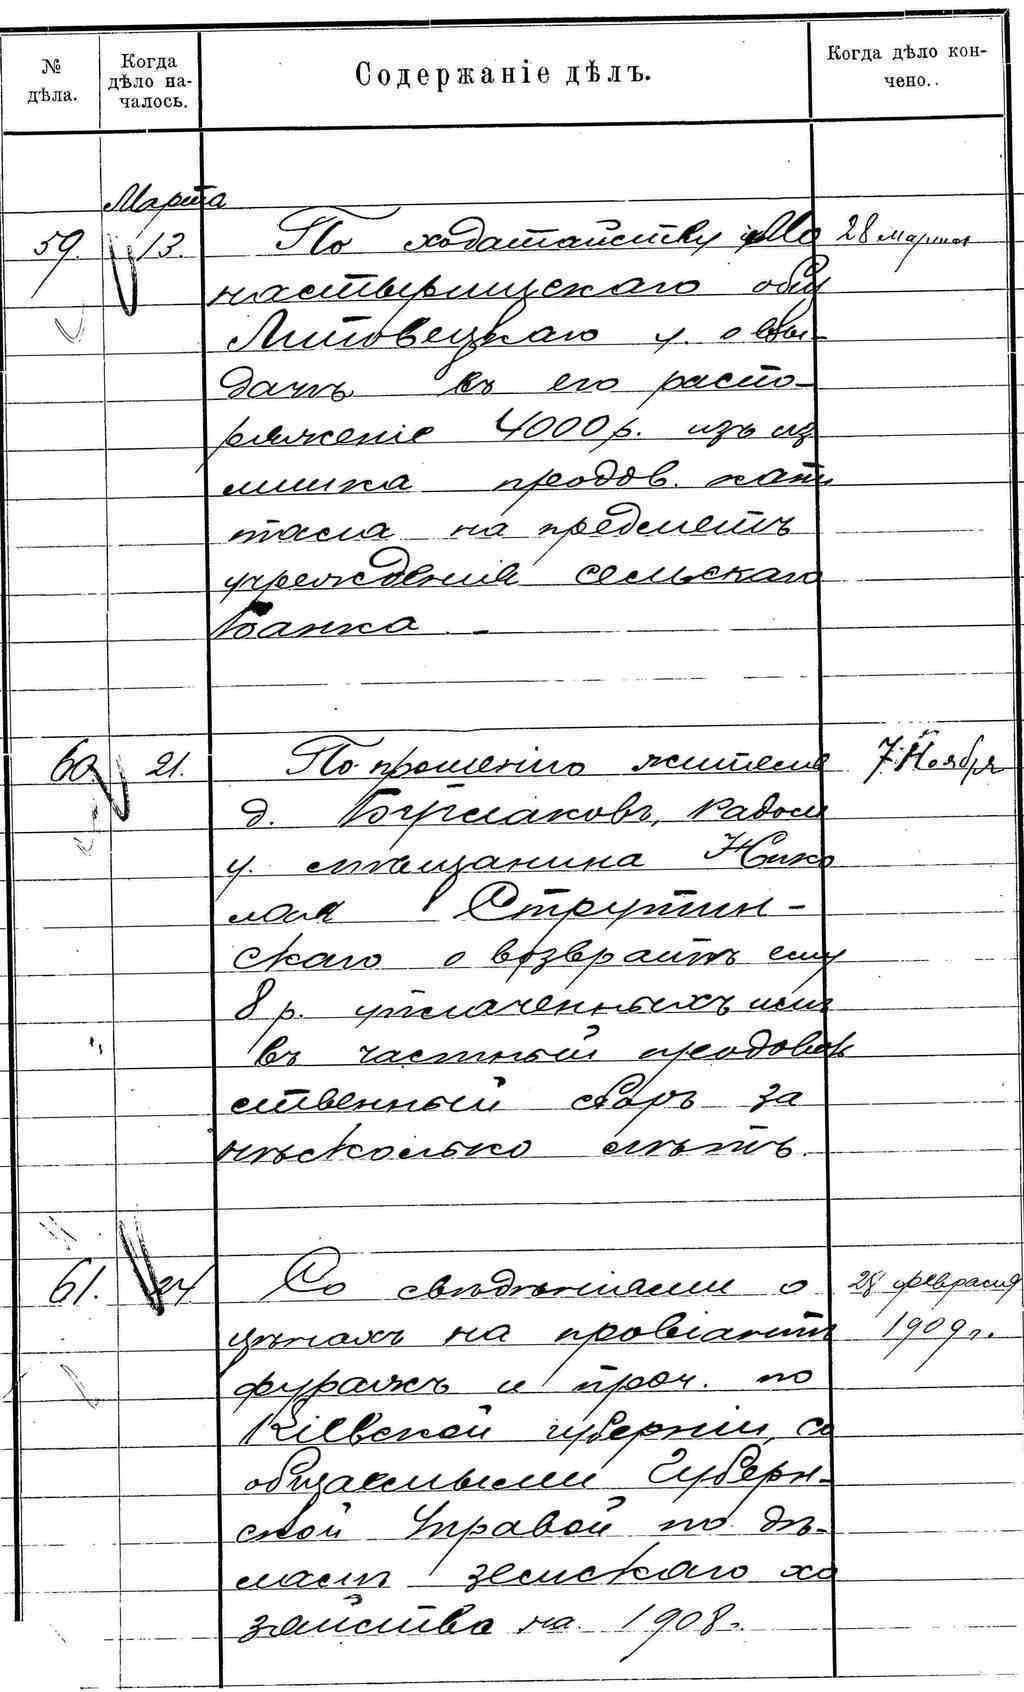 № дѣла.
Когда дѣло на-
чалось.
Содержаніе дѣлъ.
Когда дѣло кон-
чено..
Марта
59. 13. По ходатайству Мо 28 марта
настырищскаго общ
Липовецкаго у. о вы-
дачѣ въ его распо-
ряженіе 4000 р. изъ из
лишка продов. капи
тала на предметъ
учрежденія сельскаго
Банка. -
60 21. По прошенію жителя 7 Ноября
д. Бурлаковъ, Радом
у. мѣщанина Нико
лая Струтин-
скаго о возвратѣ ему
8 р. уплаченныхъ имъ
въ частный продоволь
ственный сборъ за
нѣсколько лѣтъ.
61. 24 Со свѣдѣніями о 28 февраля
цѣнахъ на провіантъ 1909 г.
фуражъ и проч. по
Кіевской губерніи, со
общаемыми Губерн-
ской Управой по дѣ-
ламъ земскаго хо
зяйства на 1908 г.